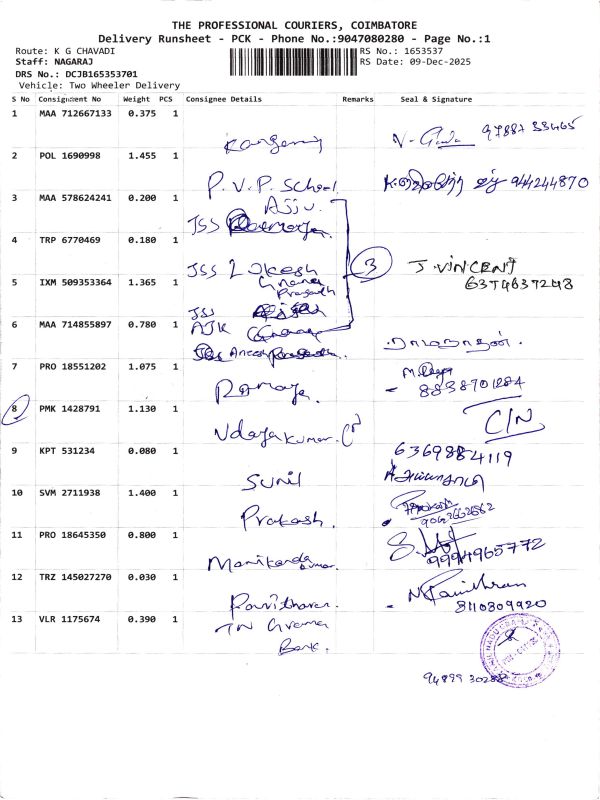 THE PROFESSIONAL COURIERS, COIMBATORE
Delivery Runsheet - PCK - Phone No.:9047080280 - Page No.:1
Route: K G CHAVADI
RS No.: 1653537
Staff: NAGARAJ
RS Date: 09-Dec-2025
DRS No.: DCJB165353701
Vehicle: Two Wheeler Delivery
S No Consignment No Weight PCS Consignee Details Remarks Seal & Signature
1 MAA 712667133 0.375 1
2 POL 1690998 1.455 1
P. V. P. School
3 MAA 578624241 0.200 1
AJJU
JSS
4 TRP 6770469 0.180 1
JSS Lokesh
3
J. VINCENT
6374637248
5 IXM 509353364 1.365 1
Prasath
JSS
6 MAA 714855897 0.780 1
AJK
ராமநாதன்.
7 PRO 18551202 1.075 1
Ramaya
8838701284
8 PMK 1428791 1.130 1
Udayakumar.
C/N
9 KPT 531234 0.080 1
6369884119
Sunil
10 SVM 2711938 1.400 1
Prakash.
11 PRO 18645350 0.800 1
Manikanda kumar.
9994965772
12 TRZ 145027270 0.030 1
Pavitharan.
8110809920
13 VLR 1175674 0.390 1
TN Grama
Bank.
94899 30288